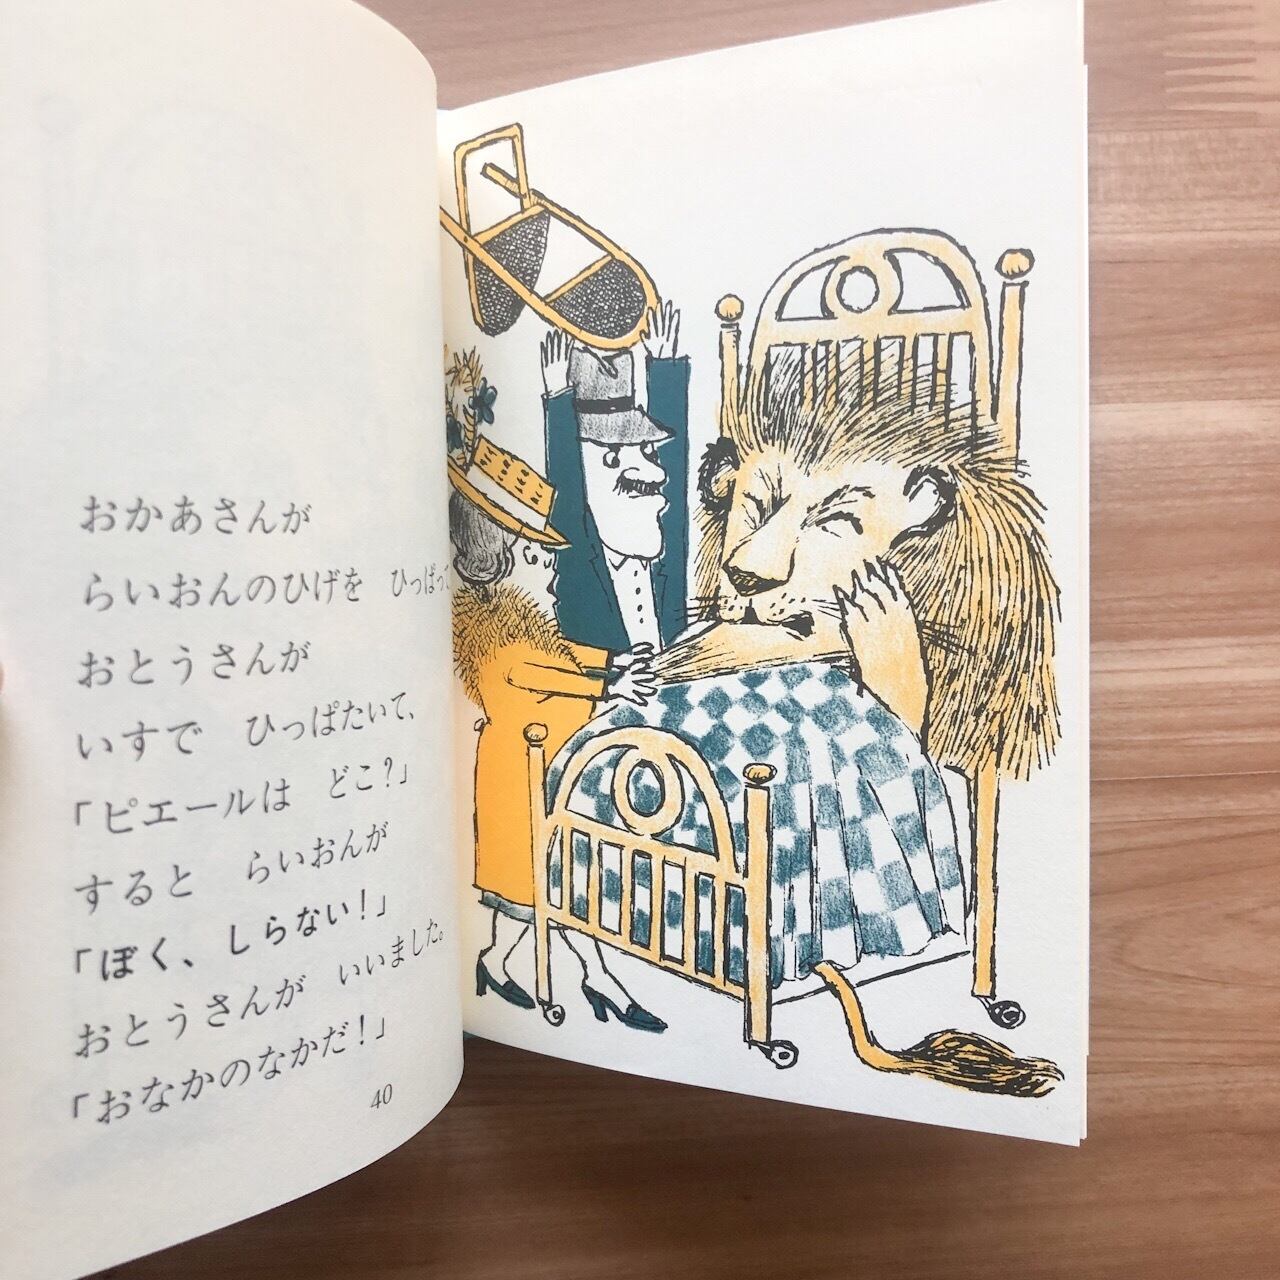 おかあさんが
らいおんのひげを　ひっぱって
おとうさんが
いすで　ひっぱたいて、
「ピエールは　どこ？」
すると　らいおんが
「ぼく、しらない！」
おとうさんが　いいました。
「おなかのなかだ！」
40